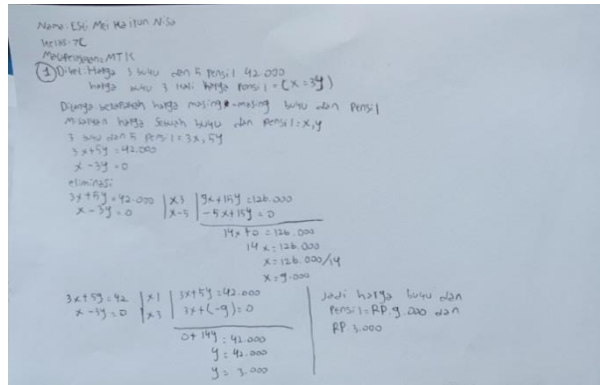 Nama: Esti Mei Haitun Nisa
Kelas: 7C
Matapelajaran: MTK
1 Diket: Harga 3 buku dan 5 Pensil 42.000
harga buku 3 kali harga Pensil = (x = 3y)
Ditanya berapakah harga masing-masing buku dan Pensil
Misalkan harga sebuah buku dan Pensil = x, y
3 buku dan 5 Pensil = 3x, 5y
3x + 5y = 42.000
x - 3y = 0
eliminasi
3x + 5y = 42.000 | x3 | 9x + 15y = 126.000
x - 3y = 0 | x-5 | -5x + 15y = 0
14x + 0 = 126.000
14x = 126.000
x = 126.000/14
x = 9.000
3x + 5y = 42 | x1 | 3x + 5y = 42.000
x - 3y = 0 | x3 | 3x + (-9) = 0
0 + 14y = 42.000
y = 42.000
y = 3.000
Jadi harga buku dan
Pensil = RP. 9.000 dan
RP 3.000